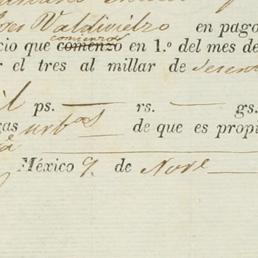 Valdivielzo en pago
comienza
cio que comenzo en 1.º del mes de
r el tres al millar de
il ps. rs. gs.
as urbas de que es propi
México 9, de Nove